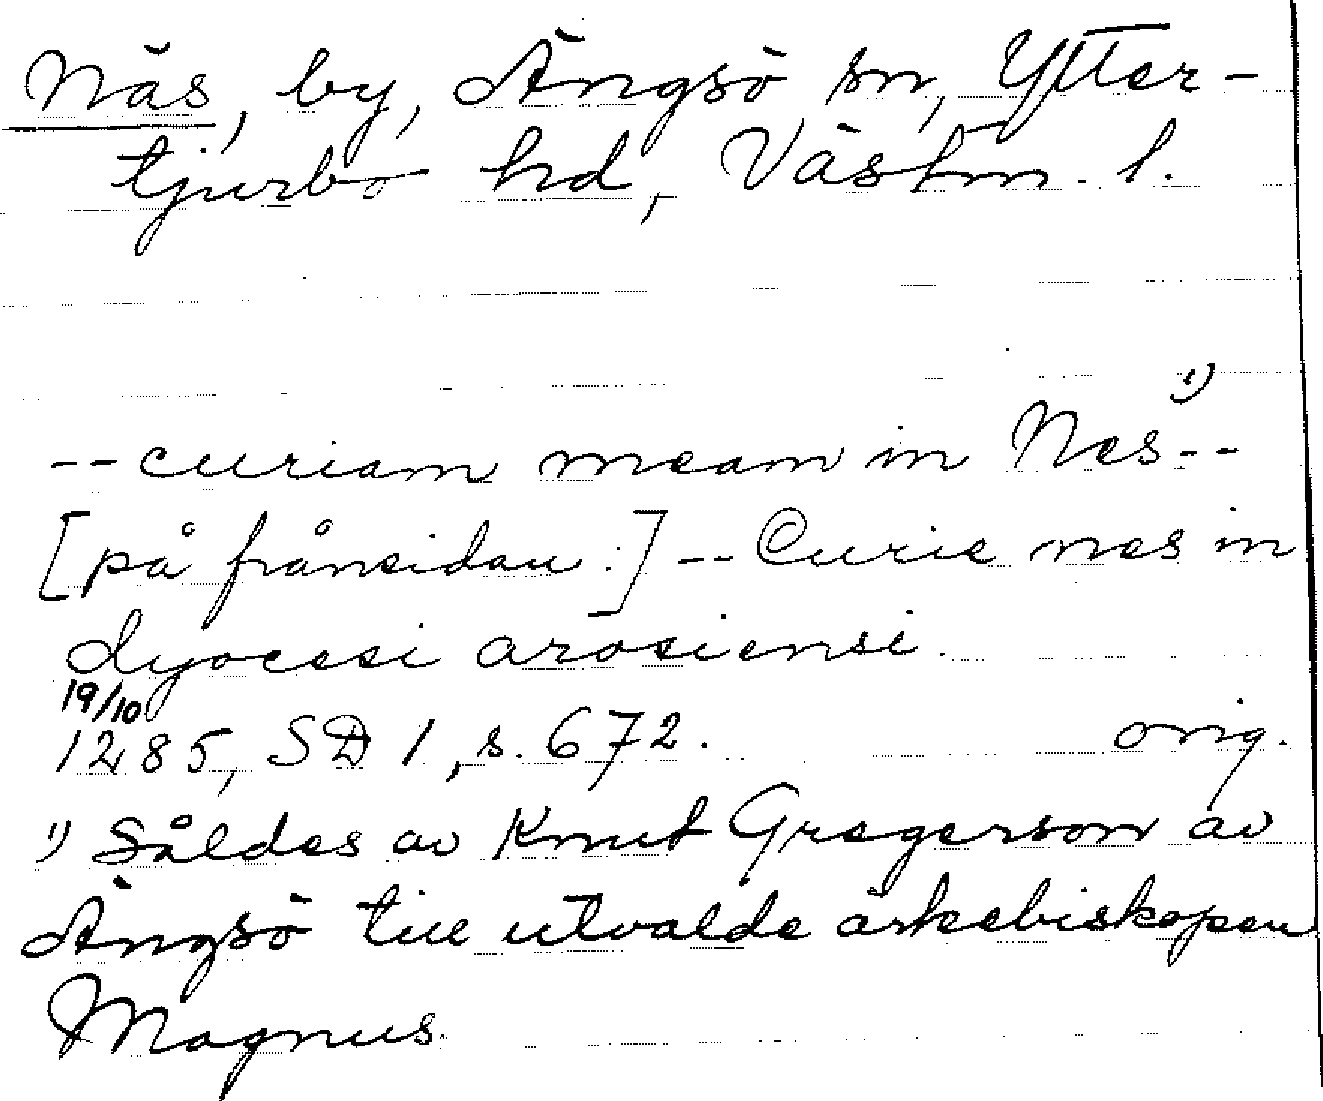 Näs, by, Ängsö sn, Ytter-
tjurbo hd, Västm. l.
--curiam meam in Nes¹⁾--
[på frånsidan:] -- Curie nes in
dyocesi arosiensi.
19/10
1285, SD 1, s. 672. orig.
¹⁾ Såldes av Knut Gregerson av
Ängsö till utvalde ärkebiskopen
Magnus.